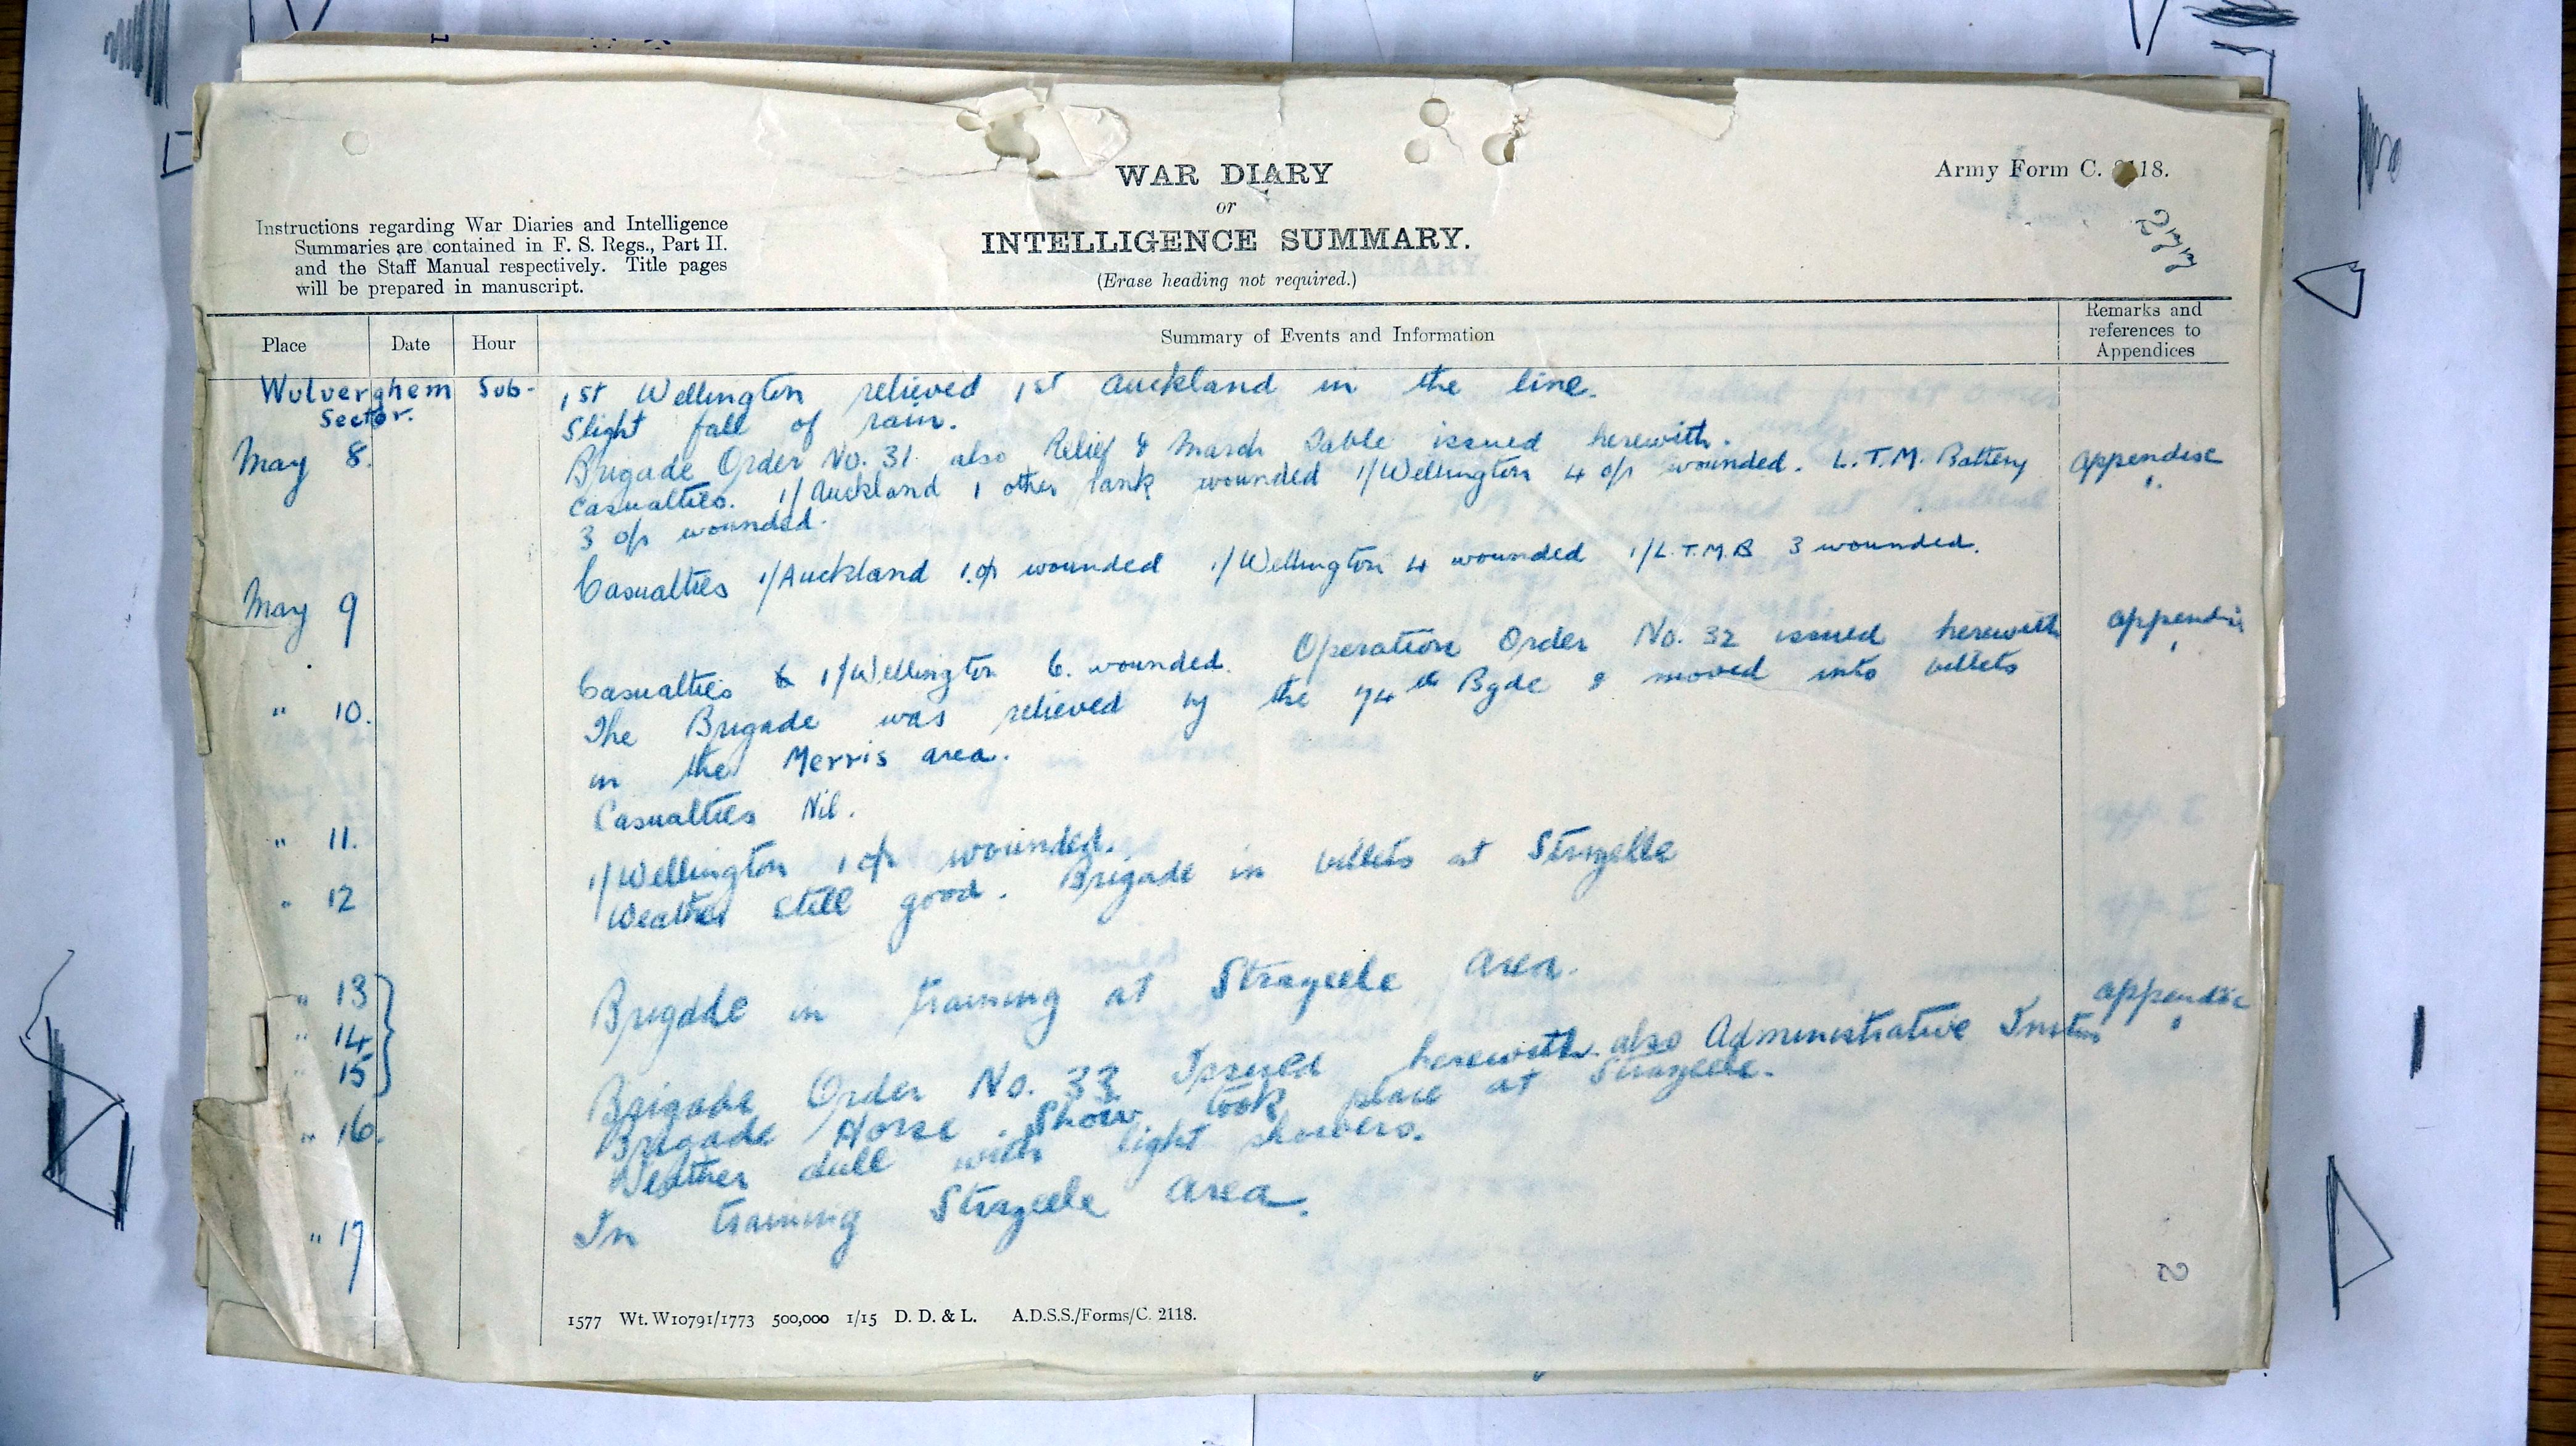 WAR DIARY
or
INTELLIGENCE SUMMARY.
(Erase heading not required.)
Army Form C. 2118.
Instructions regarding War Diaries and Intelligence
Summaries are contained in F. S. Regs., Part II.
and the Staff Manual respectively. Title pages
will be prepared in manuscript.
Place Date Hour Summary of Events and Information Remarks and references to Appendices
Wulverghem Sub- 1st Wellington relieved 1st Auckland in the line.
Sector. Slight fall of rain.
May 8. Brigade Order No. 31 also Relief & March Table issued herewith. appendix 1.
Casualties. 1/Auckland 1 other rank wounded 1/Wellington 4 o/r wounded. L.T.M. Battery
3 o/r wounded.
May 9 Casualties 1/Auckland 1.o/r wounded 1/Wellington 4 wounded 1/L.T.M.B 3 wounded.
" 10. Casualties 1/Wellington 6. wounded. Operation Order No. 32 issued herewith appendix
The Brigade was relieved by the 74th Bgde & moved into billets
in the Merris area.
" 11. Casualties Nil.
" 12 1/Wellington 1 o/r wounded.
Weather still good. Brigade in billets at Strazelle
" 13
" 14
" 15
Brigade in training at Strazeele Area.
" 16. Brigade Order No. 33 Issued herewith also Administrative Instns appendix
Brigade Horse Show took place at Strazeele.
Weather dull with light showers.
" 17 In training Strazeele Area.
1577 Wt. W10791/1773 500,000 1/15 D. D. & L. A.D.S.S./Forms/C. 2118.
2